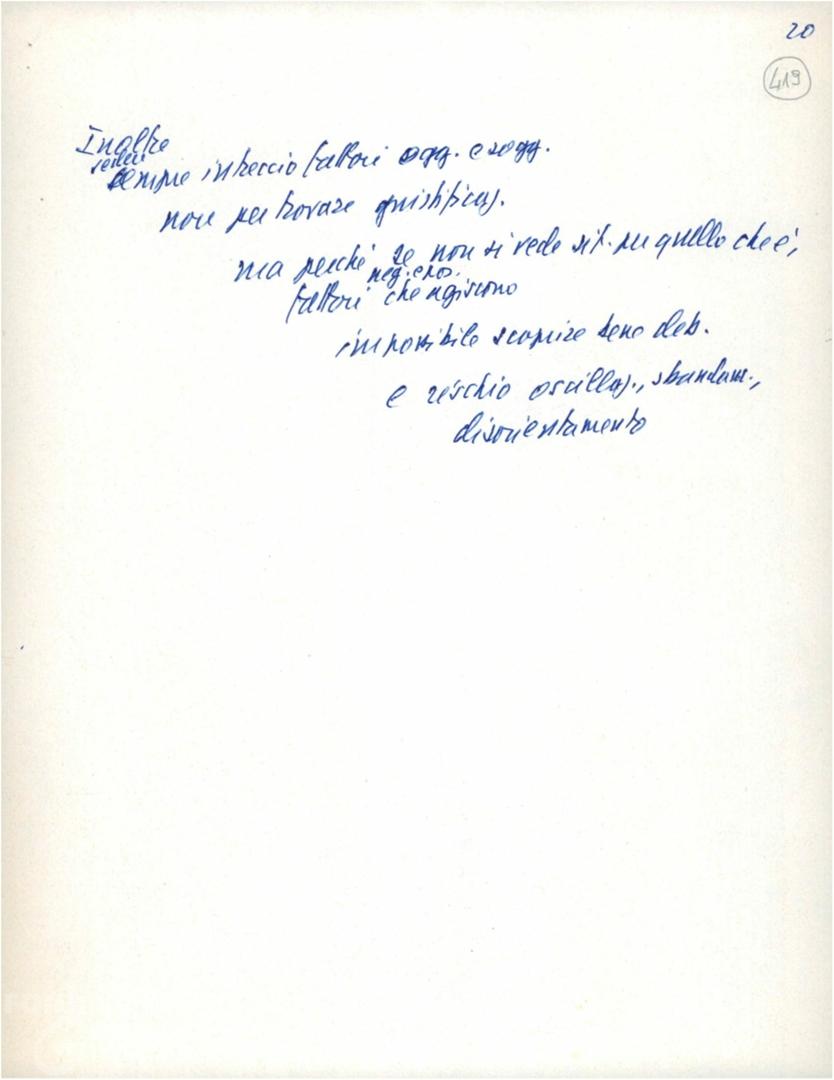 20
419
Inoltre
veder
sempre intreccio fattori ogg. e sogg.
non per trovare giustificaz.
ma perché se non si vede sit. per quello che è,
neg. e pos.
fattori che agiscono
impossibile scoprire bene deb.
e rischio oscillaz., sbandam.,
disorientamento